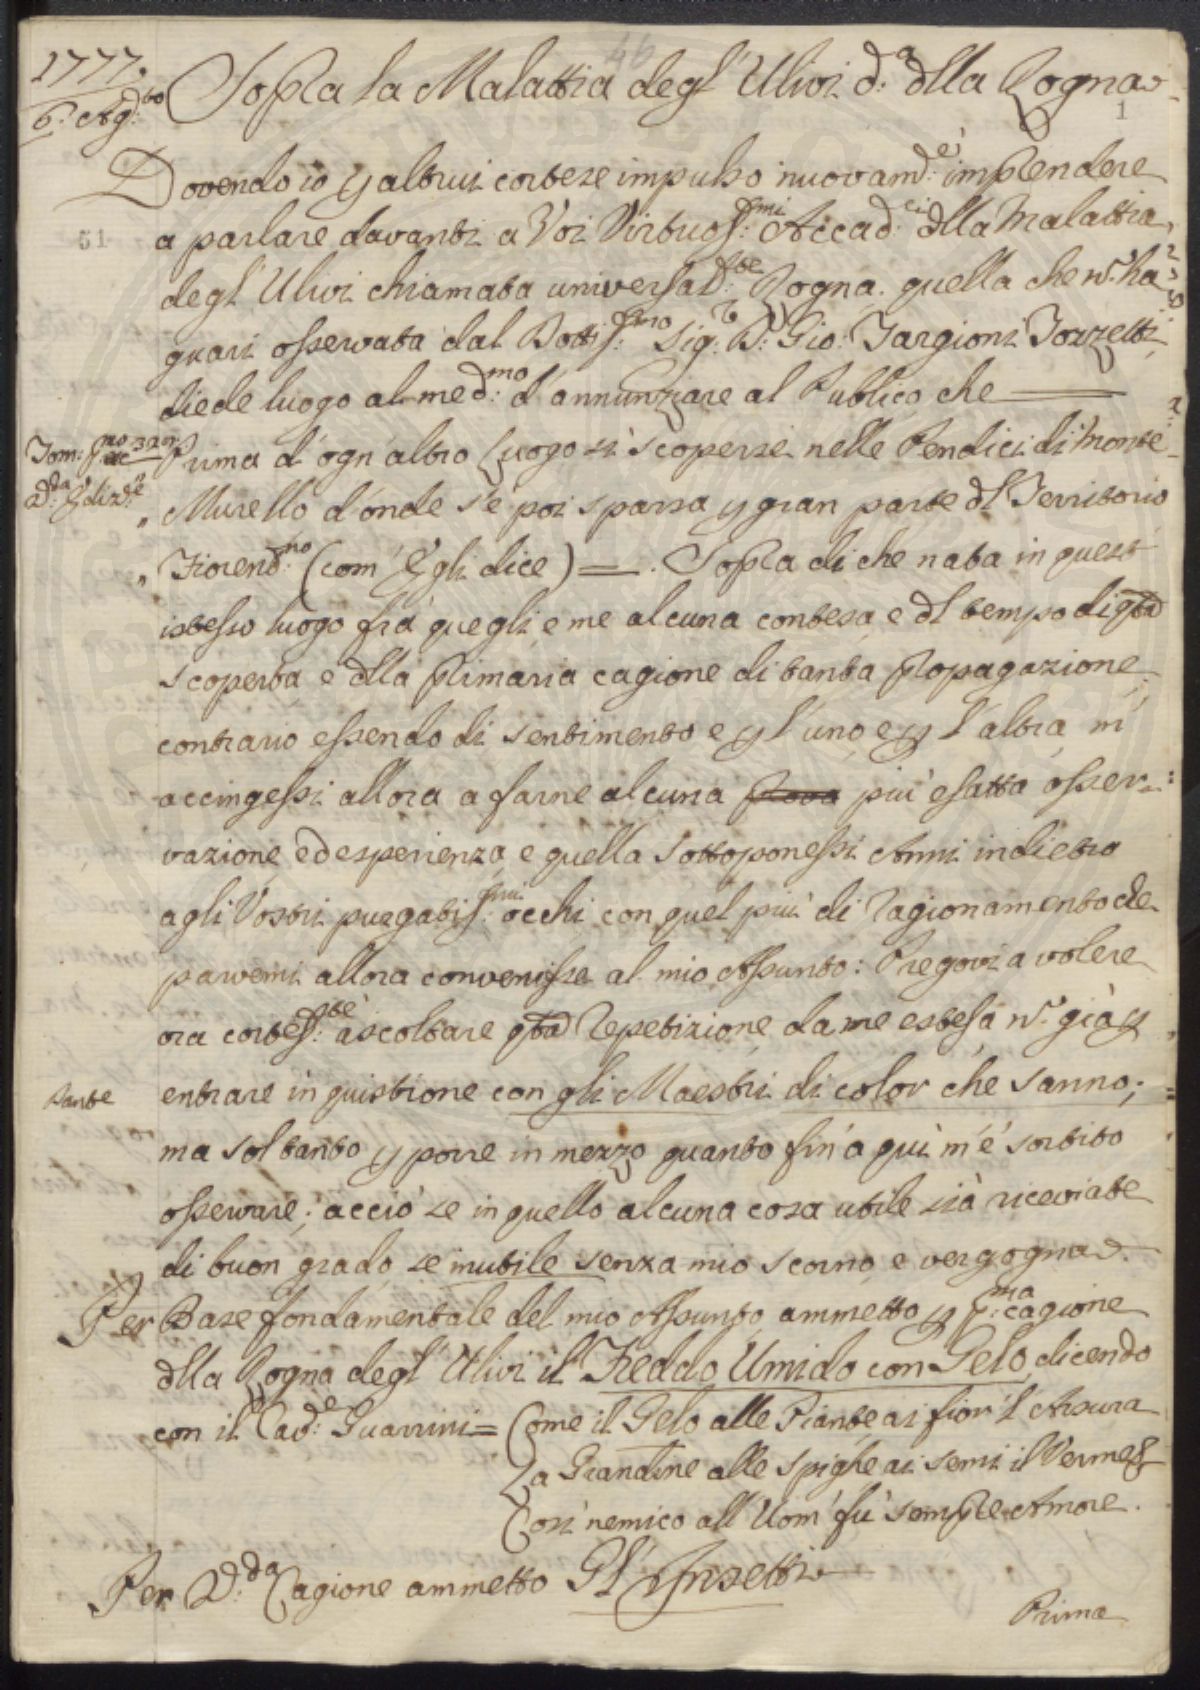 1777.
6. Ag.to
46
Sopra la Malattia degl'Ulivi d.a dlla Rogna
1
Dovendo io p altrui cortese impulso nuovam.e imprendere
51
a parlare davanti a Voi Virtuos.mi Accad.ci dlla Malattia
degl'Ulivi chiamata universal.te Rogna. quella che n. ha
guari osservata dal Dottis.mo Sig.r D. Gio: Targioni Tozzetti,
diede luogo al med.mo d'annunziare al Publico che
Tom: P.mo 3
Prima d'ogn'altro luogo si scoperse nelle Pendici di Monte
„ Murello d'onde s'è poi sparsa p gran parte dl Territorio
„ Fioren.no (com'Egli dice) =. Sopra di che nata in quest
istesso luogo frà quegli e me alcuna contesa e dl tempo di qta
scoperta e dlla primaria cagione di tanta propagazione,
contrario essendo di sentimento e p l'uno e p l'altra m'
accingessi allora a farne alcuna prova più esatta osser-
vazione ed esperienza e quella sottoponessi Anni indietro
agli Vostri purgatis.mi occhi con quel più di Ragionamento che
parvemi allora convenisse al mio Assunto: Pregovi a volere
ora cortes.te ascoltare qta Repetizione da me estesa n. già p
Dante
entrare in quistione con gli Maestri di color che sanno;
ma soltanto p porre in mezzo quanto fin'a qui m'è sortito
osservare; acciò se in quello alcuna cosa utile sià riceviate
di buon grado se inutile senza mio scorno e vergogna.
Per Base fondamentale del mio Assunto ammetto p P.ma cagione
dlla Rogna degl'Ulivi il Freddo Umido con Gelo, dicendo
con il Cav.e Guarrini = Come il Gelo alle Piante, ai fior l'Arsura
La Grandine alle spighe ai semi il Verme &
Così nemico all'Uom' fu' sempre Amore.
Per 2.da Cagione ammetto Gl'Insetti
Prima